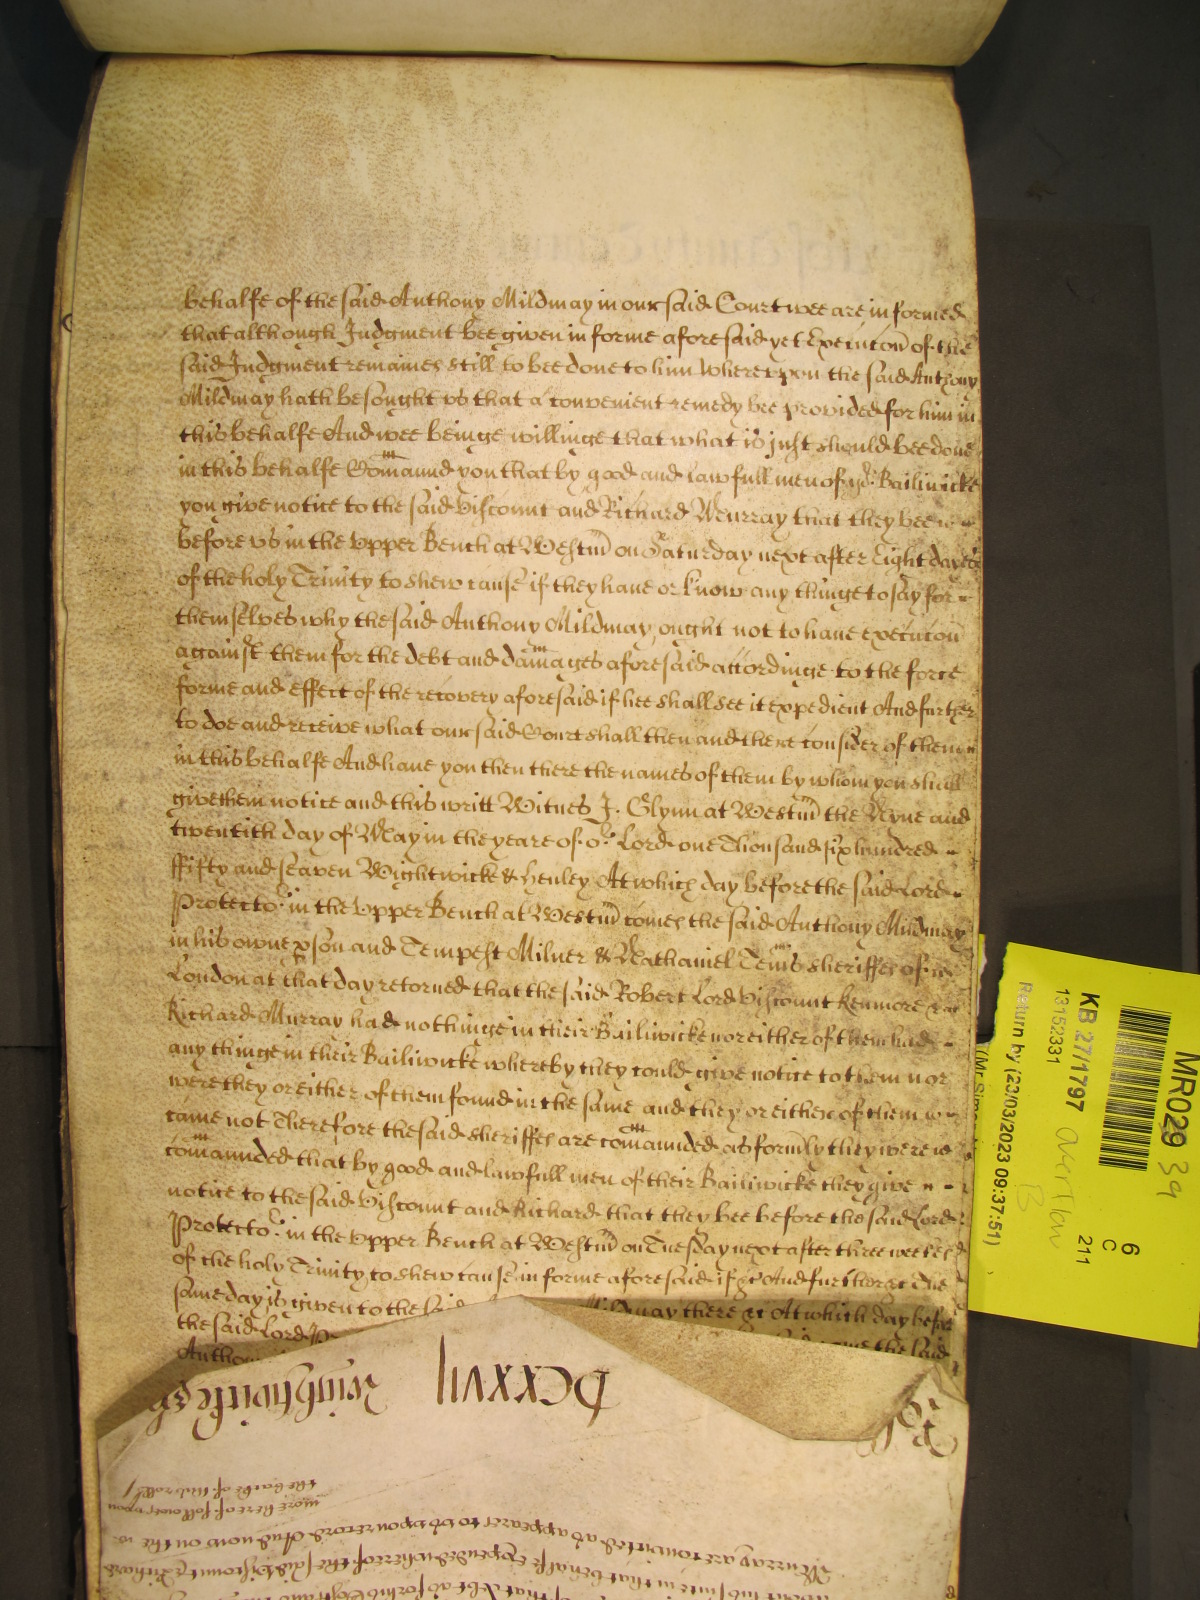 behalfe of the said Anthony Mildmay in our said Court wee are informed
that although Judgment bee given in forme aforesaid yet Execucon of the
said Judgment remaines still to bee done to him Whereupon the said Anthony
Mildmay hath besought vs that a convenient remedy bee provided for him in
this behalfe And wee beinge willinge that what is just should bee done
in this behalfe Comaund you that by good and lawfull men of yor Bailiwicke
you give notice to the said Viscount and Richard Murray that they bee
before vs in the Vpper Bench at Westm on Saturday next after Eight dayes
of the holy Trinity to shew cause if they haue or know any thinge to say for
themselves why the said Anthony Mildmay ought not to haue execucon
against them for the debt and damages aforesaid accordinge to the force
forme and effect of the recovery aforesaid if hee shall see it expedient And further
to doe and receive what our said Court shall then and there consider of them
in this behalfe And haue you then there the names of them by whom you shall
give them notice and this writt Witnes J. Glynn at Westm the Nyne and
twentith day of May in the yeare of or Lord one Thousand six hundred
ffifty and seaven Wightwicke & Henley At which day before the said Lord
Protector in the Vpper Bench at Westm comes the said Anthony Mildmay
in his owne pson and Tempest Milner & Nathaniel Tems sheriffes of
London at that day retorned that the said Robert Lord Viscount Kenmore &
Richard Murray had nothinge in their Bailiwicke nor either of them had
any thinge in their Bailiwicke whereby they could give notice to them nor
were they or either of them found in the same and they or either of them
came not Therefore the said sheriffes are comaunded as formly they were
comaunded that by good and lawfull men of their Bailiwicke they give
notice to the said Viscount and Richard that they bee before the said Lord
Protector in the Vpper Bench at Westm on Tuesday next after three weekes
of the holy Trinity to shew cause in forme aforesaid if &c And further &c the
same day is given to the said Mildmay there &c At which day before
the said Lord come the said
DCXXVII Wightwicke
more hereof followes vpon
the backe of this roll
Murray are convicted as appeares to vs vpon record And now on the
MR029 39
6
C
211
KB 27/1797
13152331
Return by (23/03/2023 09:37:51)